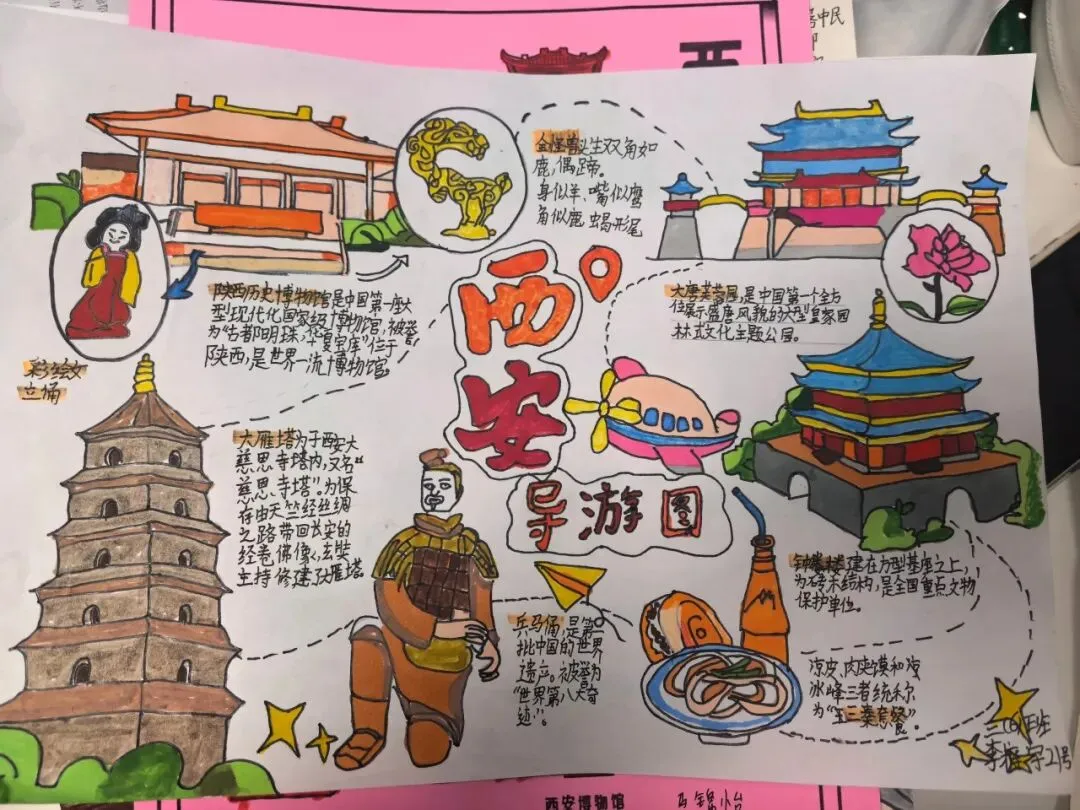 西
西
安
导游图
金怪兽头生双角如
鹿，偶蹄。
身似羊、嘴似鹰
角似鹿 蝎形尾
陕西历史博物馆是中国第一座大
型现代化国家级博物馆，被誉
为"古都明珠，华夏宝库"位于
陕西，是世界一流博物馆。
彩绘女
立俑
大唐芙蓉园，是中国第一个全方
位展示盛唐风貌的大型皇家园
林式文化主题公园。
大雁塔为于西安大
慈恩寺塔内，又名"
慈恩寺塔"。为保
存由天竺经丝绸
之路带回长安的
经卷佛像，玄奘
主持修建大雁塔
钟楼 建在方型基座之上，
为砖木结构，是全国重点文物
保护单位。
兵马俑，是第一
批中国的世界
遗产。被誉为
"世界第八大奇
迹"。
凉皮、肉夹馍和
冰峰三者统称
为"三秦套餐"。
三(6)班
李 宇 21号
西安博物馆